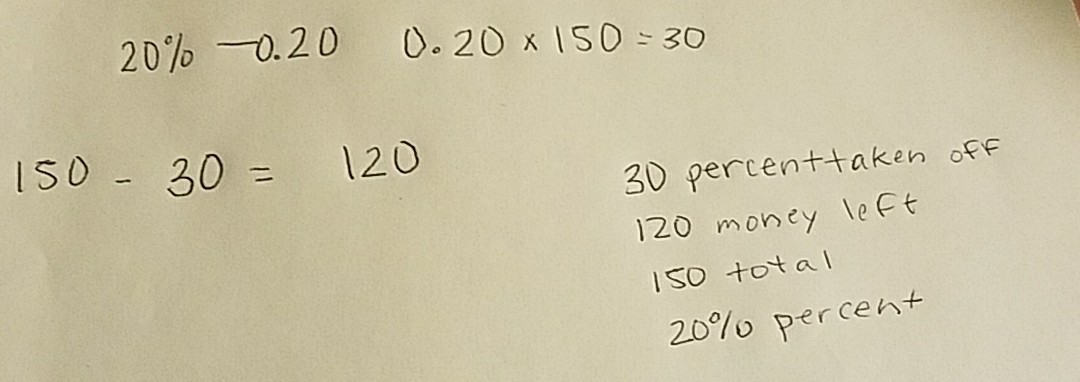 20% —0.20 0.20 x 150 = 30
150 - 30 = 120
30 percenttaken off
120 money left
150 total
20% percent